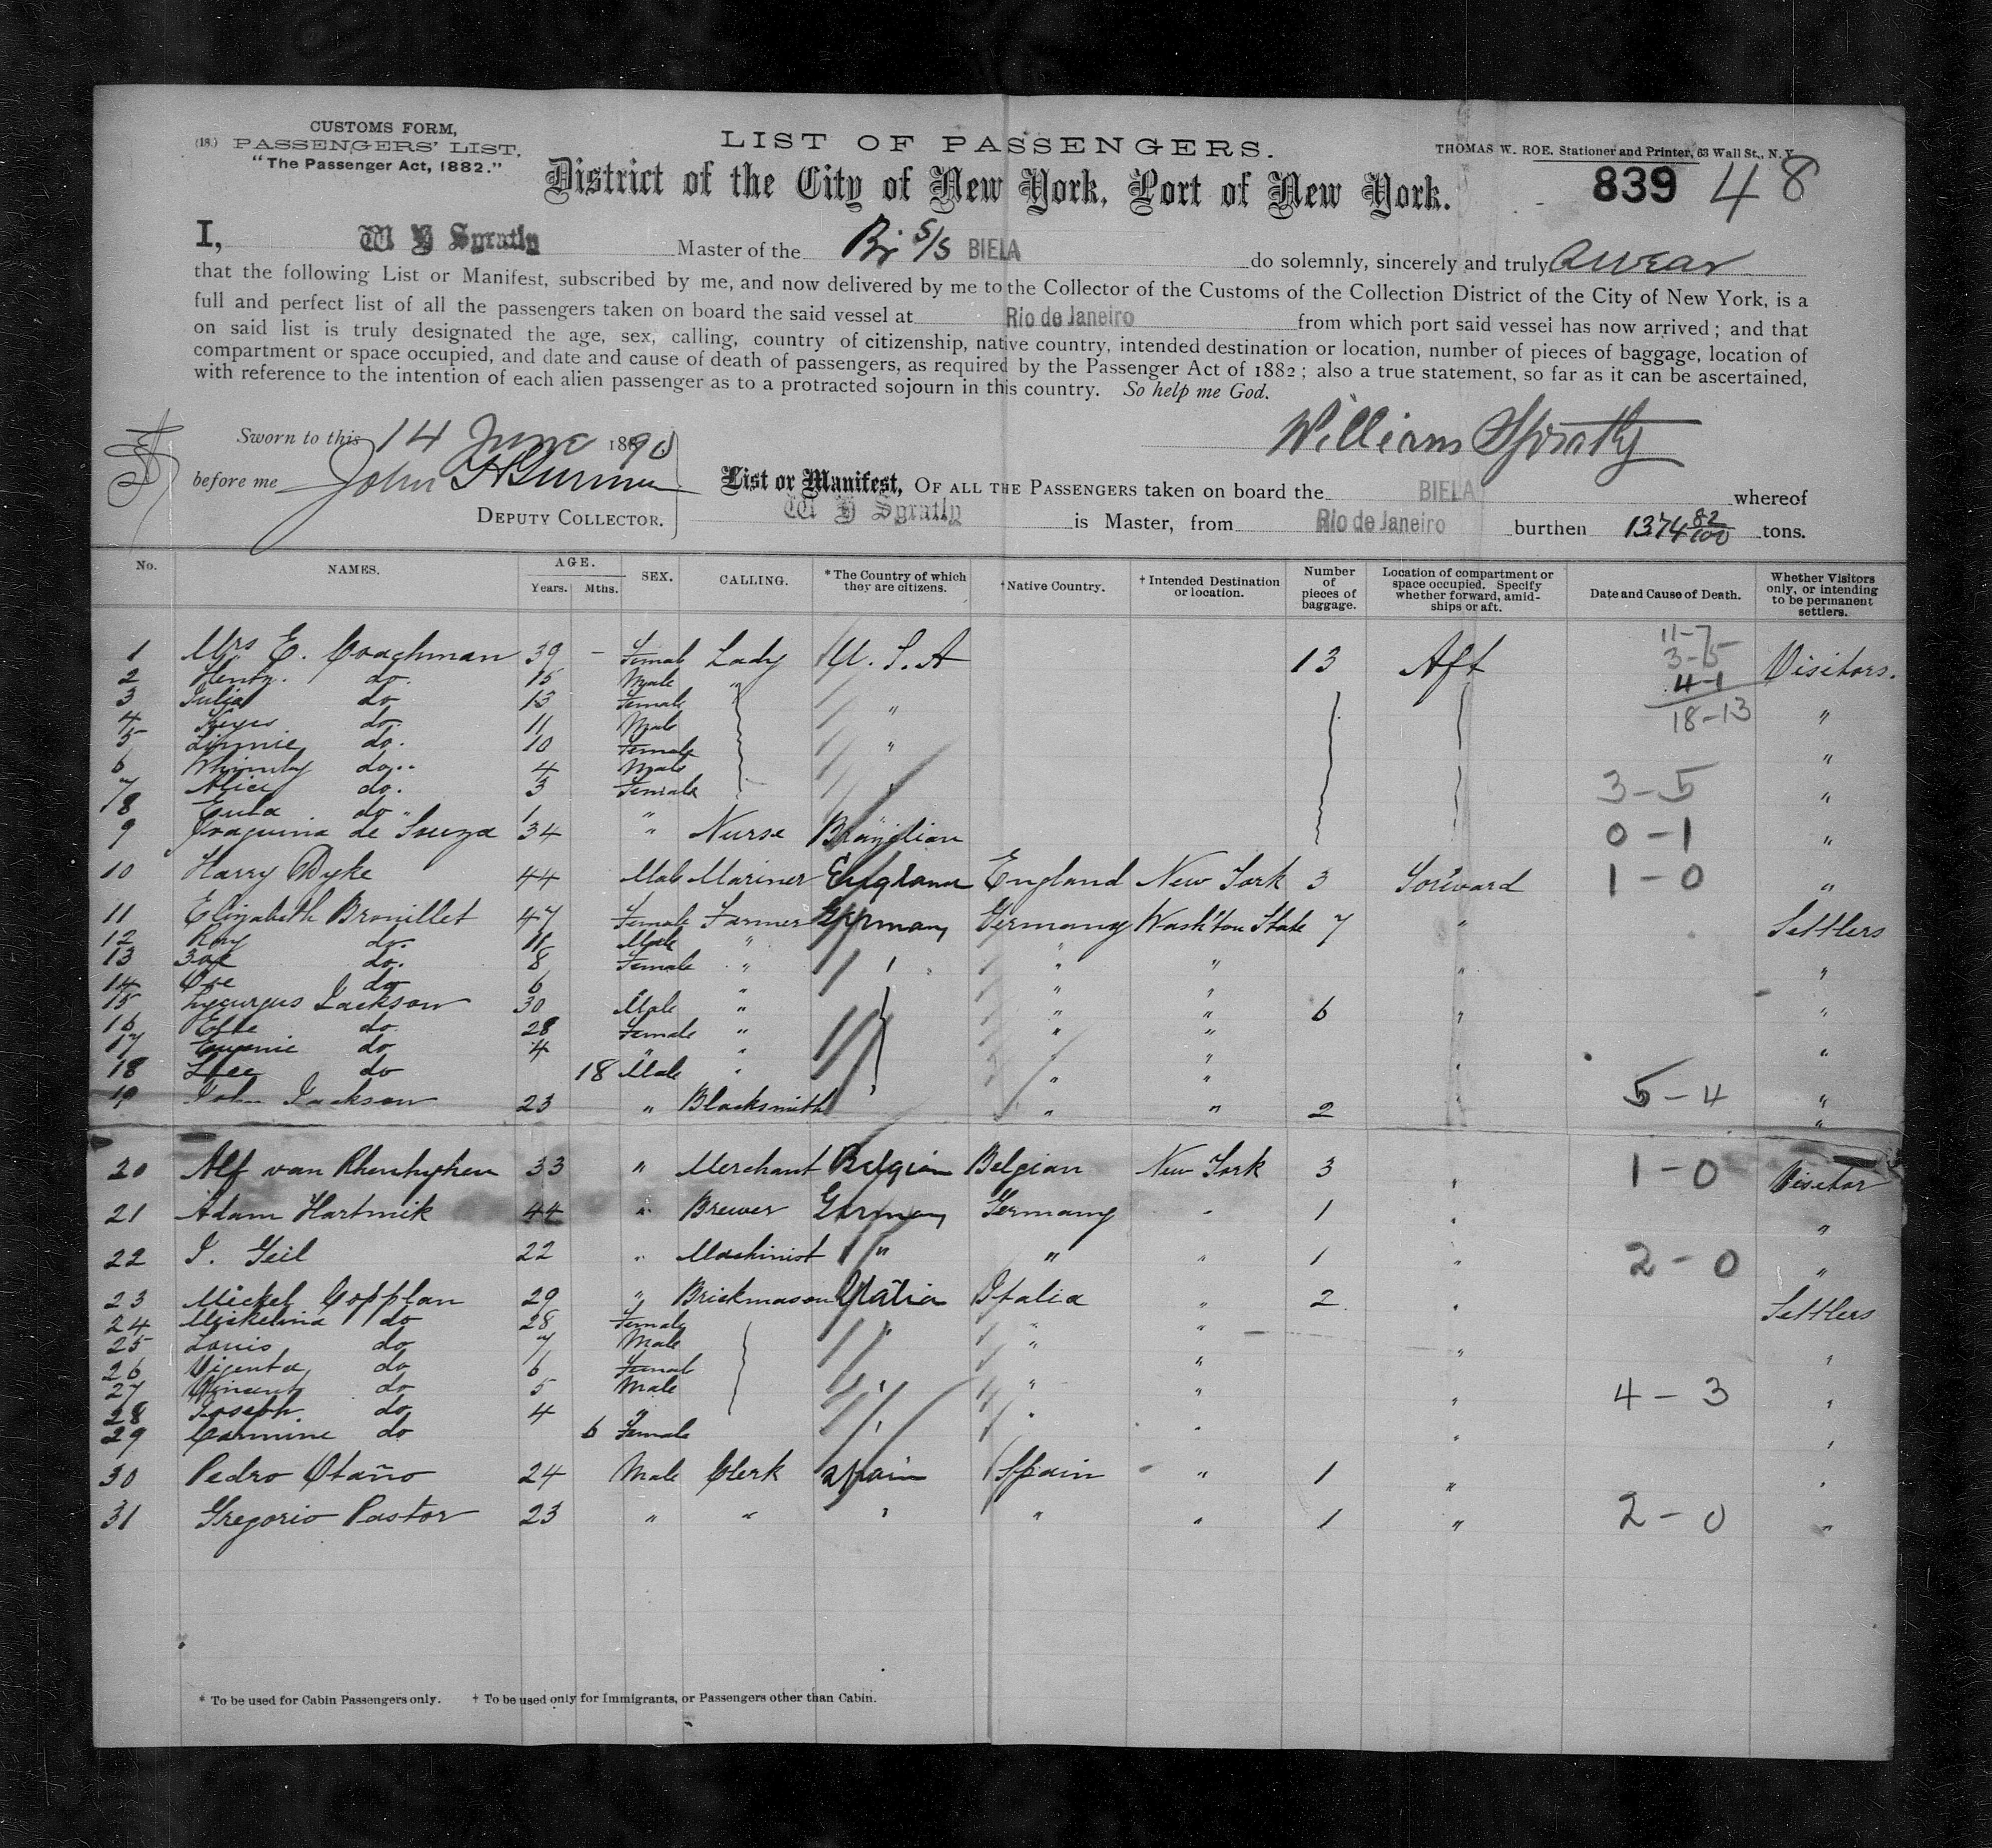 CUSTOMS FORM,
(18.) PASSENGERS' LIST.
"The Passenger Act, 1882."
LIST OF PASSENGERS.
THOMAS W. ROE. Stationer and Printer, 63 Wall St., N. Y.
District of the City of New York, Port of New York.
839 48
I, W H Spratly Master of the Br S/S BIELA do solemnly, sincerely and truly swear
that the following List or Manifest, subscribed by me, and now delivered by me to the Collector of the Customs of the Collection District of the City of New York, is a
full and perfect list of all the passengers taken on board the said vessel at Rio de Janeiro from which port said vessel has now arrived; and that
on said list is truly designated the age, sex, calling, country of citizenship, native country, intended destination or location, number of pieces of baggage, location of
compartment or space occupied, and date and cause of death of passengers, as required by the Passenger Act of 1882; also a true statement, so far as it can be ascertained,
with reference to the intention of each alien passenger as to a protracted sojourn in this country. So help me God.
Sworn to this 14 June 1890
William Spratly
before me John
List or Manifest, OF ALL THE PASSENGERS taken on board the BIELA whereof
DEPUTY COLLECTOR.
W H Spratly is Master, from Rio de Janeiro burthen 1374 82/100 tons.
No. NAMES. AGE. Years. Mths. SEX. CALLING. * The Country of which they are citizens. † Native Country. † Intended Destination or location. Number of pieces of baggage. Location of compartment or space occupied. Specify whether forward, amidships or aft. Date and Cause of Death. Whether Visitors only, or intending to be permanent settlers.
11-7
1 Mrs E. Coachman 39 - Female Lady U.S.A 13 Aft 3-5 Visitors.
2 Henry. do. 15 Male " 4-1
3 Julia do 13 Female " 18-13 "
4 Keyes do. 11 Male
5 Linnie do. 10 Female " "
6 do.. 4 Male
7 Alice do. 3 Female " 3-5 "
8 Eula do " 1 "
9 Joaquina de Souza 34 " Nurse Brazilian 0-1 "
10 Harry Dyke 44 Male Mariner England England New York 3 Forward 1-0 "
11 Elizabeth Brouillet 47 Female Farmer Germany Germany Wash'ton State 7 " Settlers
12 Roy do. 11 Male "
13 do. 8 Female " " " " " "
14 do 6 " " " "
15 Lycurgus Jackson 30 Male " " " 6 " "
16 Effie do 28 Female " " "
17 Eugenie do 4 " " " "
18 do 18 Male " " " "
19 John Jackson 23 " Blacksmith " " 2 " 5-4 "
20 Alf van 33 " Merchant Belgian Belgian New York 3 " 1-0 Visitor
21 Adam Hartmik 44 " Brewer Germany Germany " 1 " "
22 J. Geil 22 " Machinist " " " 1 " 2-0 "
23 Mickel Copplan 29 " Brickmason Italia Italia " 2 " Settlers
24 Mickelina do 28 Female " " "
25 Louis do 7 Male " " "
26 Vigenta do 6 Female " "
27 Vincent do 5 Male " " " 4-3 "
28 Joseph do 4 " " "
29 Carmine do 6 Female " " "
30 Pedro Otaño 24 Male Clerk Spain Spain " 1 " "
31 Gregorio Pastor 23 " " " " " 1 " 2-0 "
* To be used for Cabin Passengers only. † To be used only for Immigrants, or Passengers other than Cabin.